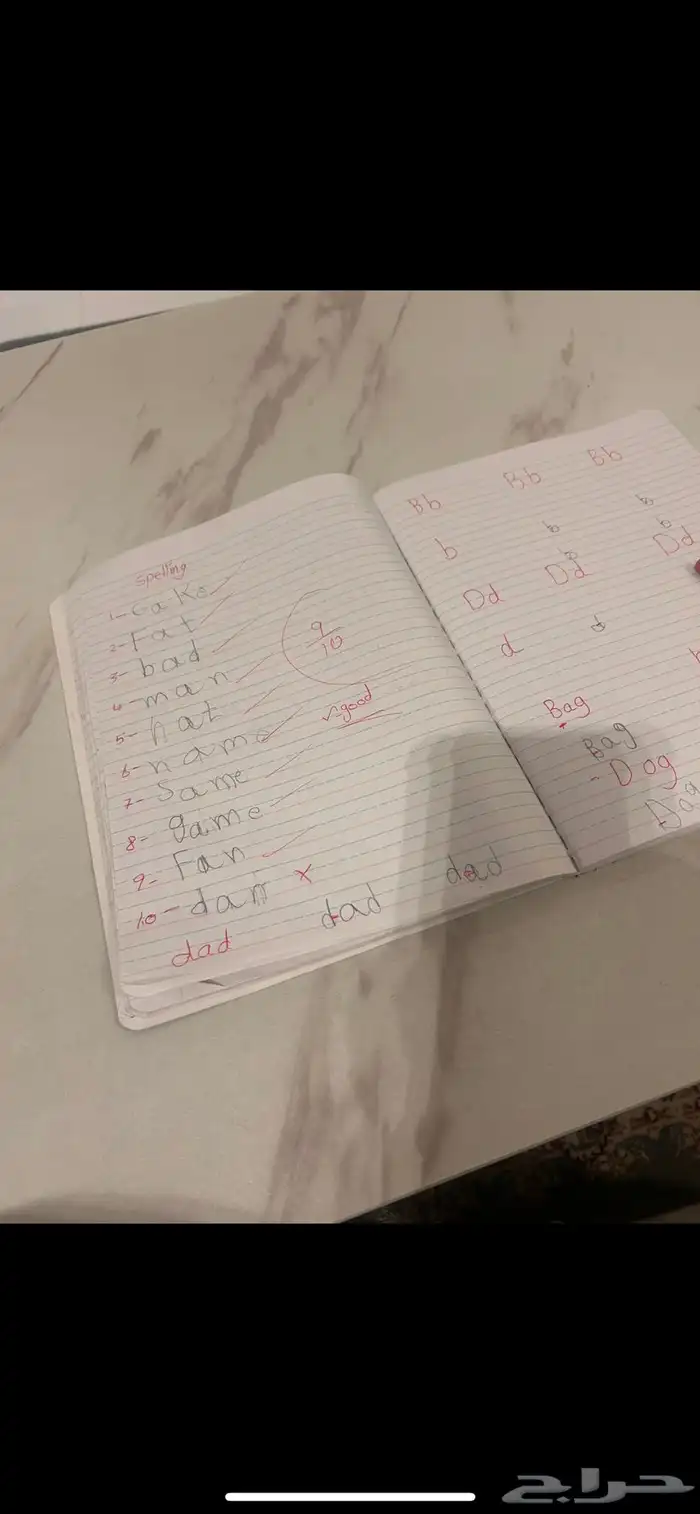 Spelling
1- Cake
2- Fat
3- bad
4- man
5- hat
6- name
7- Same
8- game
9- Fan
10- dan x
dad dad dad
9/10
✓good
Bb Bb Bb
b b b
b b
Dd Dd Dd
d d
Bag
Bag
- Dog
Dog
حراج